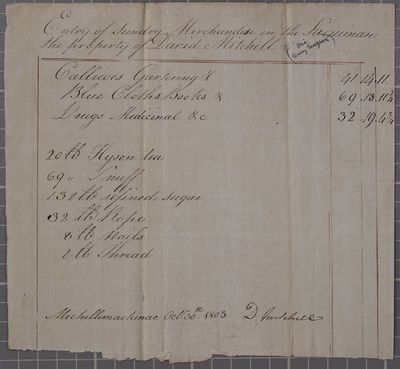 Entry of Sundry Merchandise in the
the property of David Mitchell
Callicoes Gartering & 41 14 11
Blue Cloths Books & 69 13 11½
Drugs Medicinal &c 32 19 4½
20 lb Hyson tea
69 " Snuff
132 lb refined sugar
32 lb Rope
8 lb Nails
2 lb Thread
Michilimackinac Oct 30th 1803 D. Mitchell